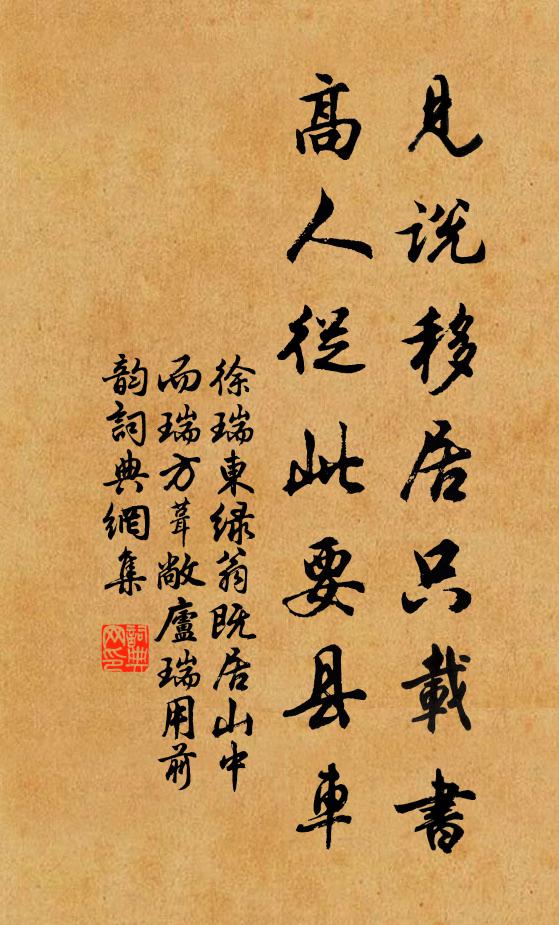 見說移居只載書
高人從此要县車
徐瑞東綠翁既居山中
而瑞方葺敞廬瑞用前
韵詞典網集
詞典网印